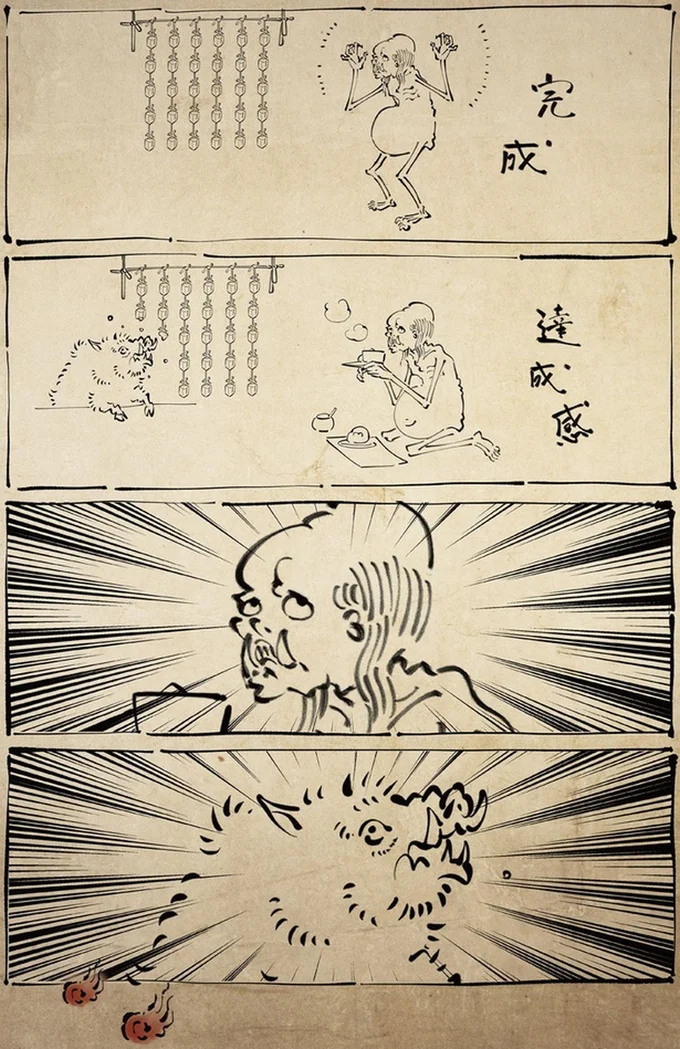 完成
達成感